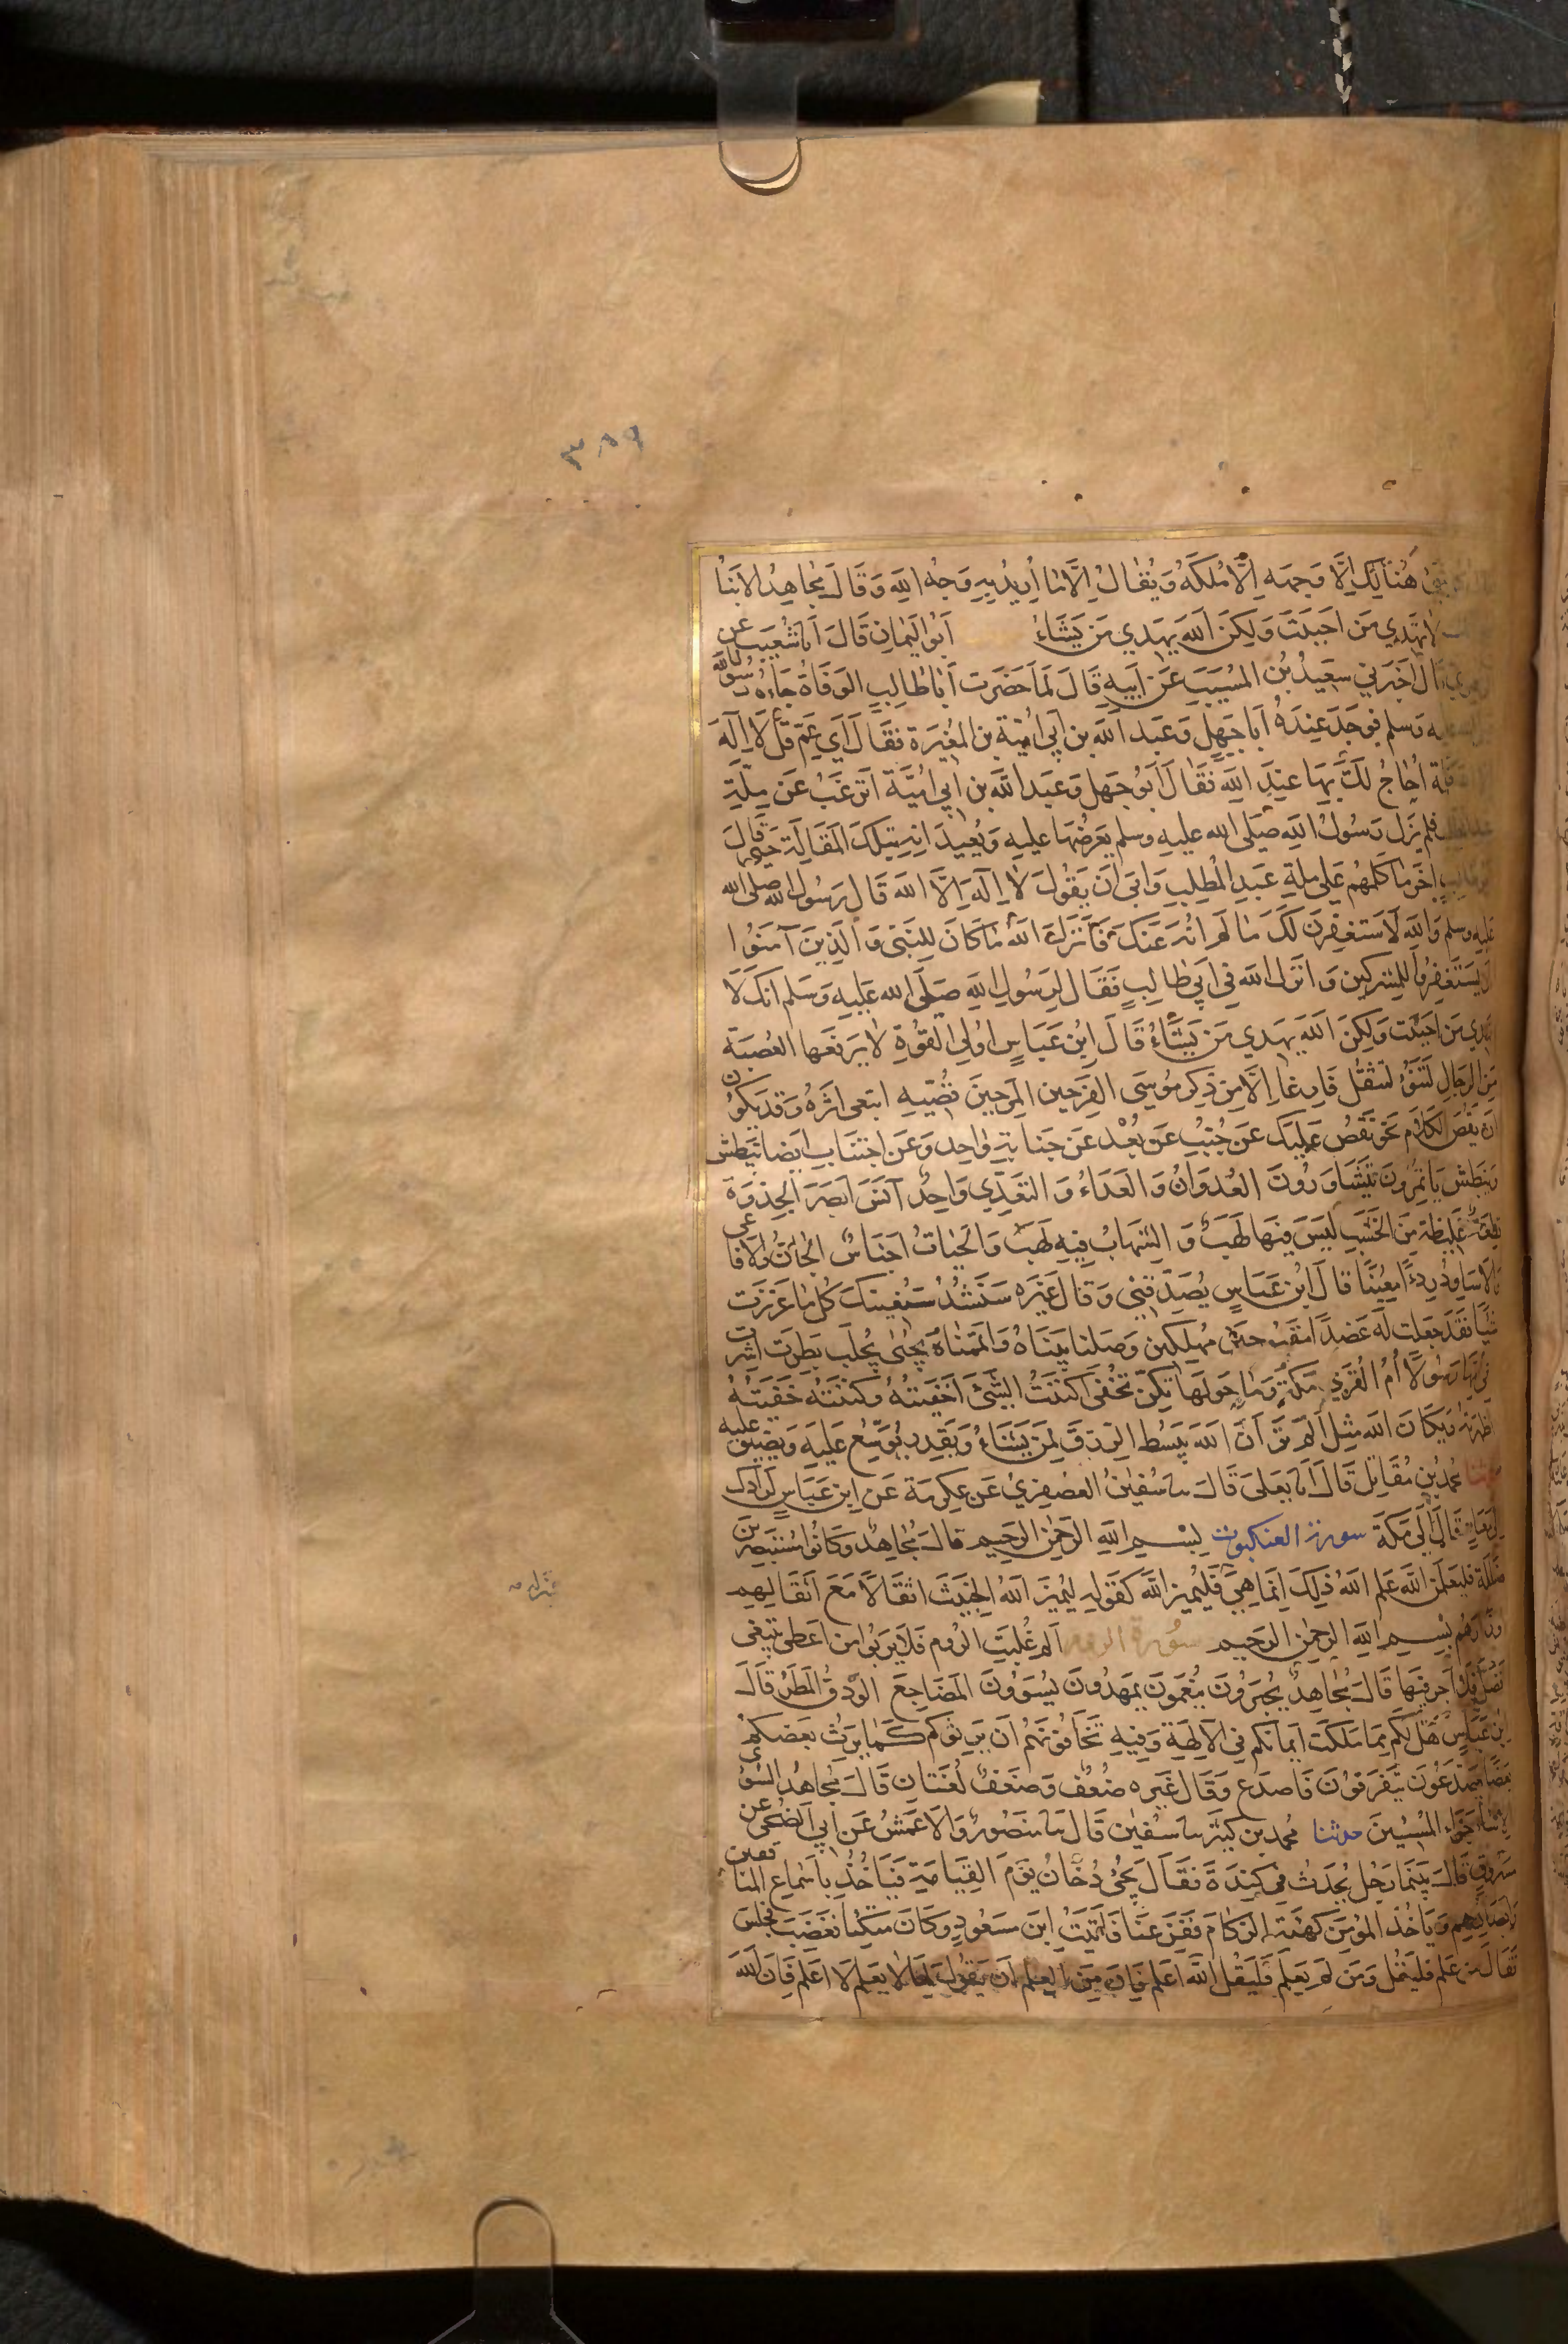 ٣٨٩
شَيْءٍ هَالِكٌ اِلَّا وَجهَه اِلَّا مُلكَهُ وَيُقالُ اِلَّا مَا اُرِيدُ بِهِ وَجهُ اللهِ وَقَالَ مُجاهِدٌ الاَنبَاءُ
لا تهدِي مَن اَحبَبتَ وَلكِنَّ اللهَ يهدي مَن يَشَاءُ اَبُو اليَمانِ قَالَ اَنا شُعَيب عن
قال اَخبَرَني سَعِيدُ بنُ المُسَيبِ عَن اَبيهِ قَالَ لَمَّا حَضَرَت اَبَا طَالِبٍ الوَفَاةُ جَاءهُ رسُولُ اللهِ
عليه وَسلم فوَجَدَ عِندَهُ اَبا جَهلٍ وَعَبد اللهِ بنَ اَبي اُمَيّة بنِ المُغِيرَةِ فقَالَ اَي عَمِّ قُل لَا اِلَهَ
اُحاجُّ لَكَ بِهَا عِندَ اللهِ فَقَالَ اَبُو جَهلٍ وَعَبد اللهِ بن اَبي اُمَيَّةَ اَتَرغَبُ عَن مِلَّةِ
فلم يَزَل رَسُولُ اللهِ صَلى الله عليهِ وسلم يَعرِضُهَا عليهِ وَيُعِيدَانِهِ بِتِلكَ المَقَالَةِ حَتى قَالَ
اَبُو طَالِبٍ اخَرَ ما كَلَّمَهُم عَلى مِلةِ عَبدِ المُطلِبِ وَابَى اَن يَقُولَ لَا اِلَهَ اِلَّا الله قَالَ رَسُولُ اللهِ صلى الله
عليه وسلم وَاللهِ لَاَستَغفِرَنَّ لَكَ مَا لَم اُنهَ عَنكَ فَاَنزَلَ اللهُ مَا كَانَ لِلنَّبيِّ وَالَّذِينَ آمَنُوا
اَن يَستَغفِرُوا لِلمُشرِكِين وَاَنزَلَ الله في اَبي طَالِبٍ فَقَال لِرَسُولِ اللهِ صَلَّى الله عَليهِ وَسَلم اِنَّكَ لَا
تَهدِي مَن اَحبَبتَ وَلكِنَّ اللهَ يَهدِي مَن يَشَاءُ قَالَ ابنُ عَبَّاسٍ اُولي القُوَّةِ لَا يَرفَعُها العُصبَة
مِنَ الرِّجَالِ لَتَنُوءُ لَتثقُلُ فَارِغاً اِلَّا مِن ذِكرِ مُوسَى الفَرِحِينَ المَرِحِينَ قُصِّيهِ اتبعي اَثَرَهُ وَقد يَكُونُ
اَن يَقُصَّ الكَلامَ نَحنُ نَقُصُّ عَلَيكَ عَن جُنُبٍ عَن بُعدٍ عَن جَنَابَةٍ وَاحِد وَعَن اجتِنَابٍ اَيضا نَبطِش
وَنَبطُش يَاتَمِرُونَ يَتَشَاوَرُونَ العُدوَانُ وَالعَدَاءُ وَالتعَدِّي وَاحِدٌ آنَسَ اَبصَرَ الجِذوَة
قِطعَةٌ غَلِيظَة مِنَ الخَشَبِ لَيسَ فِيهَا لَهَبٌ وَ الشِّهَابُ فِيهِ لَهَبٌ وَالحَيَّاتُ اَجنَاسٌ الجَانُّ وَالاَفَاعي
وَالاَسَاوِدُ رِدءًا مُعِينًا قَالَ ابن عَبَّاسٍ يُصَدِّقُني وَقالَ غَيرُه سَنَشُدُّ سَنُعِينكَ كُلَّ مَا عَزَّزتَ
شَيئاً فَقَد جَعَلتَ لَهُ عَضُدًا مَقبُوحينَ مُهلَكِينَ وَصَّلنا بَيَّنَّاهُ وَاَتمَمنَاهُ يُجبَى يُجلَب بَطِرَت اَشِرَت
في اُمِّهَا رَسُولًا اُمُّ القُرَى مَكَّة وَمَا حَولَها تُكِنُّ تُخفي اَكنَنتُ الشَّيءَ اَخفَيتُهُ وَكَنَنتُهُ خَفَيتُهُ
اَظهَرتُهُ وَيكَاَنَّ الله مِثلُ اَلَم تَرَ اَنَّ اللهَ يَبسُط الرِّزقَ لِمَن يَشَاءُ وَيَقدِر يُوَسِّع عَلَيهِ وَيُضَيِّق عليه
محمد بن مُقَاتِل قَالَ اَنا يَعلَى قَالَ نا سُفيَانُ العصفري عَن عِكرمَة عَن ابنِ عَبَّاسٍ لَرَادُّكَ
اِلى مَعَادٍ قَالَ اِلَى مَكَّةَ سورة العنكبوت بِسمِ اللهِ الرَّحمٰنِ الرَّحِيمِ قالَ مُجاهِدٌ وَكَانُوا مُستَبصِرِينَ
ضَلَلَة فليَعلَمَنَّ اللهُ عَلِمَ اللهُ ذلِكَ اِنما هِيَ فَليُمَيِّز الله كَقَولِهِ لِيَمِيزَ اللهُ الخَبِيثَ اثقَالًا مَعَ اثقَالِهِم
اَوزَارَهُم بسمِ اللهِ الرحمٰن الرحيم سُورة الروم الم غُلِبَتِ الرُّوم فَلَا يَربُوا مَن اَعطى يبتَغي
اَفضَلَ فَلَا اَجرَ فِيهَا قَالَ مُجَاهِدٌ يُحبَرُونَ يُنَعَّمُونَ يَمهَدُونَ يُسَوُّونَ المَضَاجِعَ الوَدقُ المَطَرُ قَالَ
ابن عَبَّاسٍ هَل لَكُم مِمَّا مَلَكَت اَيمَانُكُم في الآلِهَةِ وَفِيهِ تَخَافُونَهُم اَن يَرِثُوكُم كَمَا يَرِثُ بَعضُكُم
بَعضًا يَصَّدَّعُونَ يَتَفَرَّقُونَ فَاصدَع وَقَالَ غَيرُه ضُعفٌ وَضَعفٌ لُغَتَانِ قَالَ مُجَاهِدٌ السُّوأى
الاِسَاءَةُ جَزَاءُ المُسِيئِينَ حدثنا مُحمد بن كَثير نا سُفيَان قَالَ نا مَنصُورٌ وَالاَعمَشُ عَن اَبي الضُّحَى عن
مَسرُوقٍ قَالَ بَينَمَا رَجُل يُحَدِّثُ في كِندَةَ فَقَالَ يَجيءُ دُخَانٌ يَومَ القِيَامَةِ فَيَاخُذُ بِاَسمَاعِ المُنافِقِينَ
وَاَبصَارِهِم وَيَاخُذُ المُؤمِنَ كَهَيئَةِ الزُّكَامِ فَفَزِعنَا فَاَتَيتُ ابنَ مَسعُودٍ وَكَانَ مُتَّكِئًا فَغَضِبَ فَجَلَسَ
فَقَالَ مَن عَلِمَ فَليَقُل وَمَن لَم يَعلَم فَليَقُل اللهُ اَعلَم فَاِنَّ مِنَ العِلم اَن يَقُولَ لِمَا لَا يَعلَم لَا اَعلَم فَاِنَّ اللهَ